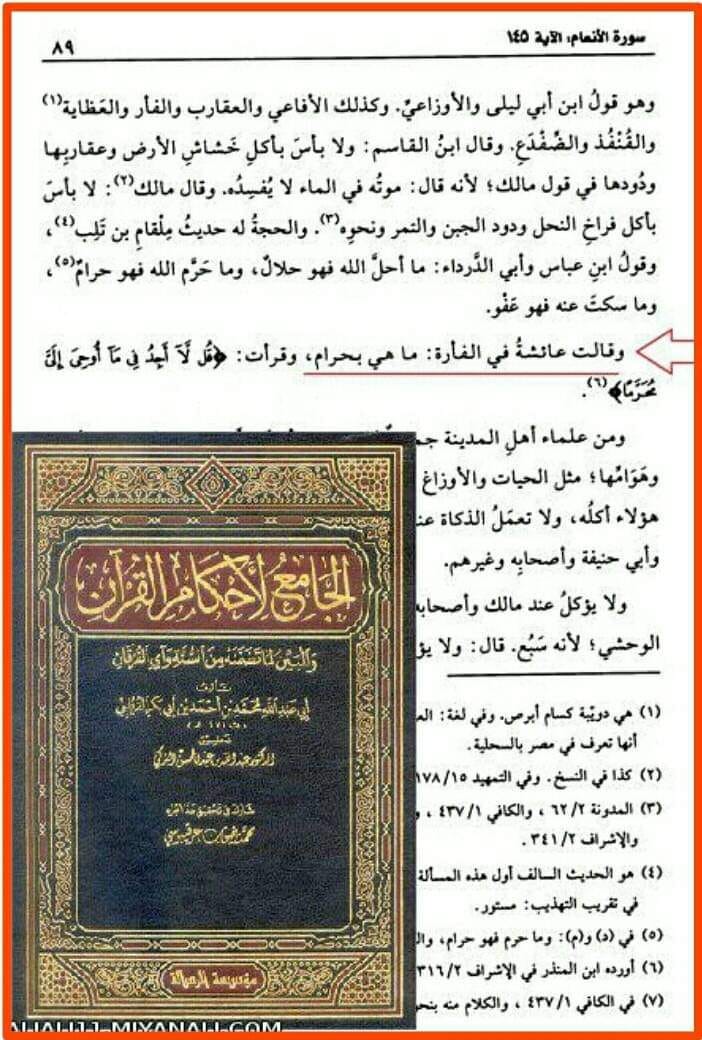 سورة الأنعام: الآية ١٤٥
٨٩
وهو قولُ ابن أبي ليلى والأوزاعيِّ. وكذلك الأفاعي والعقارب والفأر والعَظاية(١)
والقُنْفُذ والضِّفْدَع. وقال ابنُ القاسم: ولا بأسَ بأكلِ خَشاشِ الأرض وعقاربِها
ودُودها في قول مالك؛ لأنه قال: موتُه في الماء لا يُفسِدُه. وقال مالك(٢): لا بأسَ
بأكل فراخِ النحل ودود الجبن والتمر ونحوِه(٣). والحجةُ له حديثُ مِلْقامِ بن تَلِب(٤)،
وقولُ ابنِ عباس وأبي الدَّرداء: ما أحلَّ الله فهو حلالٌ، وما حَرَّم الله فهو حرامٌ(٥)،
وما سكتَ عنه فهو عَفْو.
وقالت عائشةُ في الفأرة: ما هي بحرام، وقرأت: ﴿قُل لَّآ أَجِدُ فِى مَآ أُوحِىَ إِلَىَّ
مُحَرَّمًا﴾(٦).
ومن علماء أهلِ المدينة
وهَوَامِّها؛ مثل الحيات والأوزاغ
هؤلاء أكلُه، ولا تعمَلُ الذكاة
وأبي حنيفة وأصحابِه وغيرهم.
ولا يؤكلُ عند مالك وأصحابه
الوحشي؛ لأنه سَبُع. قال: ولا
(١) هي دويّبة كسام أبرص. وفي لغة:
أنها تعرف في مصر بالسحلية.
(٢) كذا في النسخ. وفي التمهيد ١٧٨/١٥
(٣) المدونة ٦٢/٢ ، والكافي ٤٣٧/١ ،
والإشراف ٣٤١/٢ .
(٤) هو الحديث السالف أول هذه المسألة
في تقريب التهذيب: مستور.
(٥) في (د) و(م): وما حرم فهو حرام،
(٦) أورده ابن المنذر في الإشراف ٣١٦/٢
(٧) في الكافي ٤٣٧/١ ، والكلام منه
الجامع لأحكام القرآن
والمبين لما تضمنه من السنة وآي الفرقان
تأليف
أبي عبد الله محمد بن أحمد بن أبي بكر القرطبي
تحقيق
الدكتور عبد الله بن عبد المحسن التركي
شارك في تحقيق هذا الجزء
محمد رضوان عرقسوسي
مؤسسة الرسالة
MIYANALI.COM